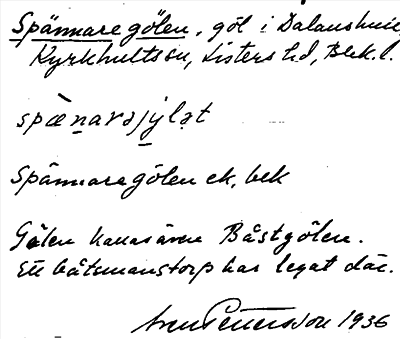 Spännaregölen, göl i Dalanshult,
Kyrkhults sn, Listers hd, Blek. l.
spæ̀narəjýlət
Spännaregölen ek, bek
Gölen kallas även Båstgölen.
Ett båtsmanstorp har legat där.
Sven Pettersson 1936